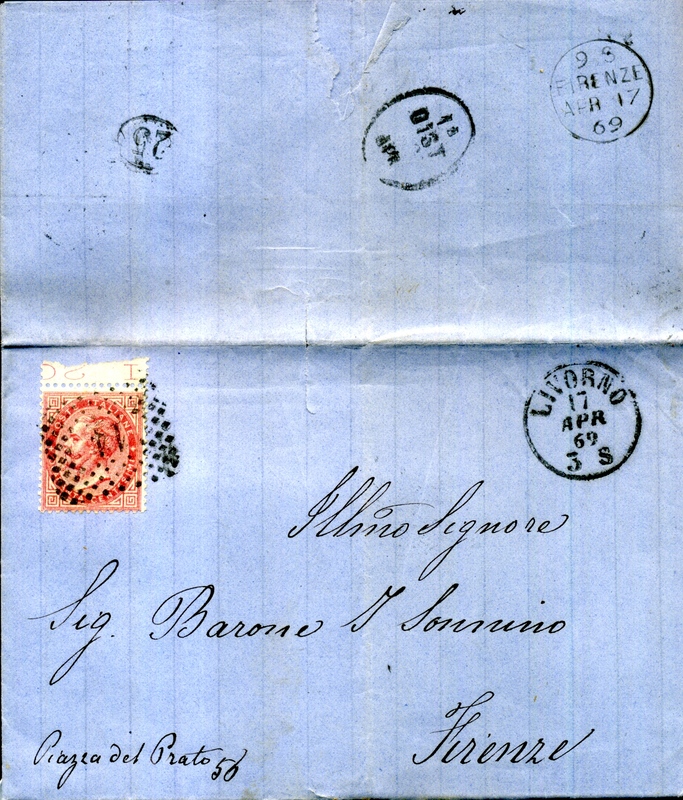 9 S
FIRENZE
APR 17
69
25
14
DIST
APR
LIVORNO
17
APR
69
3 S
Illmo Signore
Sig. Barone I Sonnino
Firenze
Piazza del Prato 56